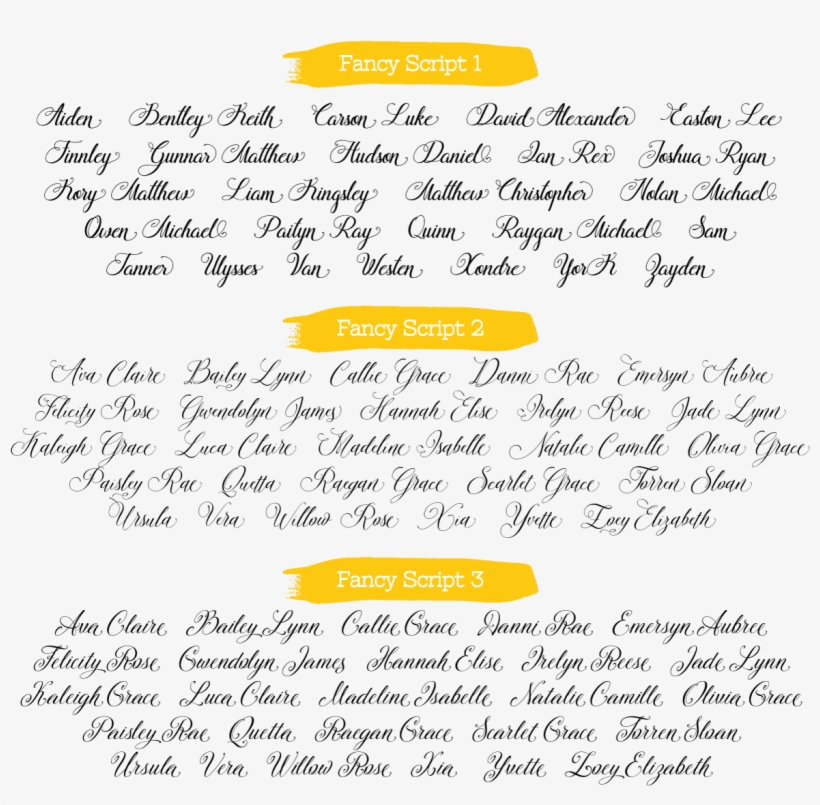 Fancy Script 1
Aiden Bentley Keith Carson Luke David Alexander Easton Lee
Finnley Gunnar Matthew Hudson Daniel Ian Rex Joshua Ryan
Kory Matthew Liam Kingsley Matthew Christopher Nolan Michael
Owen Michael Paityn Ray Quinn Raygan Michael Sam
Tanner Ulysses Van Westen Xondre YorK Zayden
Fancy Script 2
Ava Claire Bailey Lynn Callie Grace Danni Rae Emersyn Aubree
Felicity Rose Gwendolyn James Hannah Elise Irelyn Reese Jade Lynn
Kaleigh Grace Luca Claire Madeline Isabelle Natalie Camille Olivia Grace
Paisley Rae Quetta Raegan Grace Scarlet Grace Torren Sloan
Ursula Vera Willow Rose Xia Yvette Zoey Elizabeth
Fancy Script 3
Ava Claire Bailey Lynn Callie Grace Danni Rae Emersyn Aubree
Felicity Rose Gwendolyn James Hannah Elise Irelyn Reese Jade Lynn
Kaleigh Grace Luca Claire Madeline Isabelle Natalie Camille Olivia Grace
Paisley Rae Quetta Raegan Grace Scarlet Grace Torren Sloan
Ursula Vera Willow Rose Xia Yvette Zoey Elizabeth